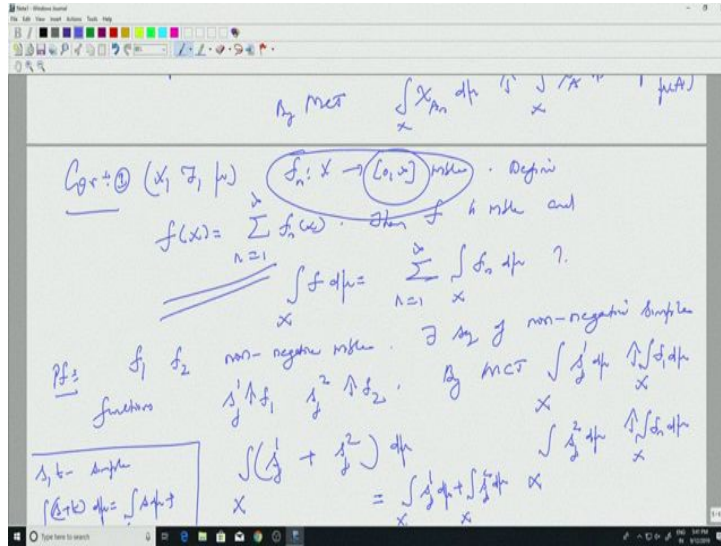 Note1 - Windows Journal
File Edit View Insert Actions Tools Help
By MCT ∫_X χ_{A_n} dμ ↑ ∫_X χ_A μ(A)
Cor: ① (X, F, μ) f_n: X → [0, ∞] mble. Define
f(x) = Σ_{n=1}^∞ f_n(x). Then f is mble and
∫_X f dμ = Σ_{n=1}^∞ ∫_X f_n dμ.
Pf: f_1 f_2 non-negative mble. ∃ seq of non-negative simple
functions s_j^1 ↑ f_1 s_j^2 ↑ f_2. By MCT ∫_X s_j^1 dμ ↑ ∫_X f_1 dμ
∫_X s_j^2 dμ ↑ ∫_X f_2 dμ
s, t - simple
∫(s+t) dμ = ∫ s dμ +
∫_X (s_j^1 + s_j^2) dμ
= ∫_X s_j^1 dμ + ∫_X s_j^2 dμ
Type here to search
ENG 5:41 PM
IN 9/12/2019